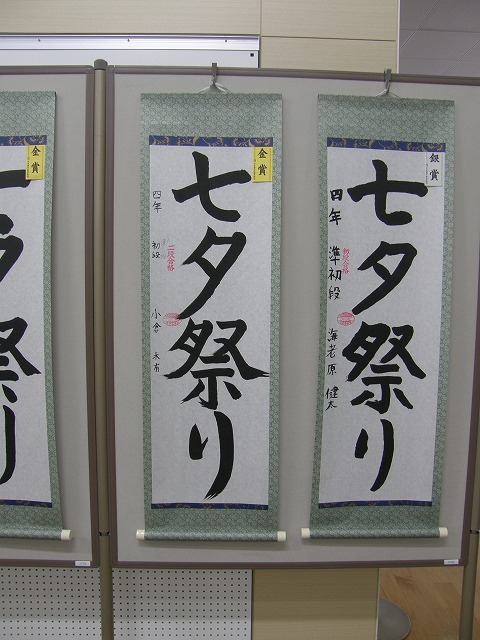 銀賞
七夕祭り
四年 準初段 海老原 健太
初段合格
金賞
七夕祭り
四年 初段 小倉
二段合格
金賞